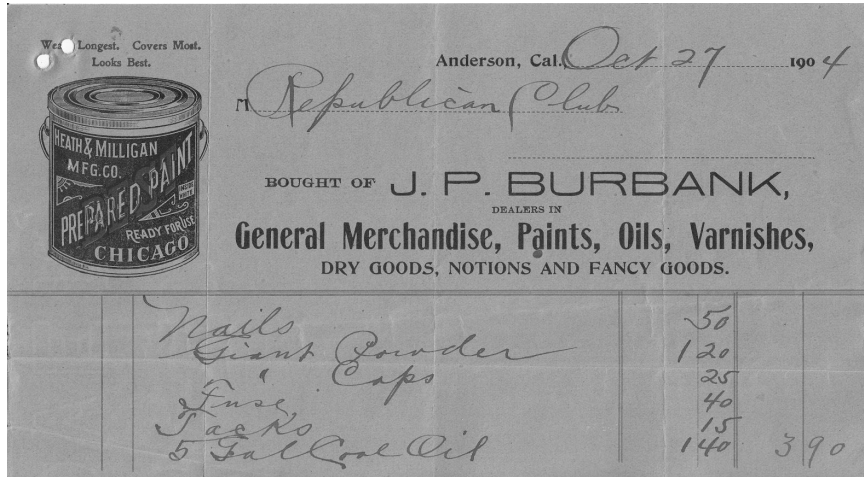 Wears Longest. Covers Most.
Looks Best.
HEATH & MILLIGAN
MFG. CO.
PREPARED PAINT
READY FOR USE
CHICAGO
Anderson, Cal., Oct 27 1904
M Republican Club
BOUGHT OF J. P. BURBANK,
DEALERS IN
General Merchandise, Paints, Oils, Varnishes,
DRY GOODS, NOTIONS AND FANCY GOODS.
Nails 50
Giant Powder 1 20
" Caps 25
Fuse 40
Tacks 15
5 Gal Coal Oil 1 40 3 90